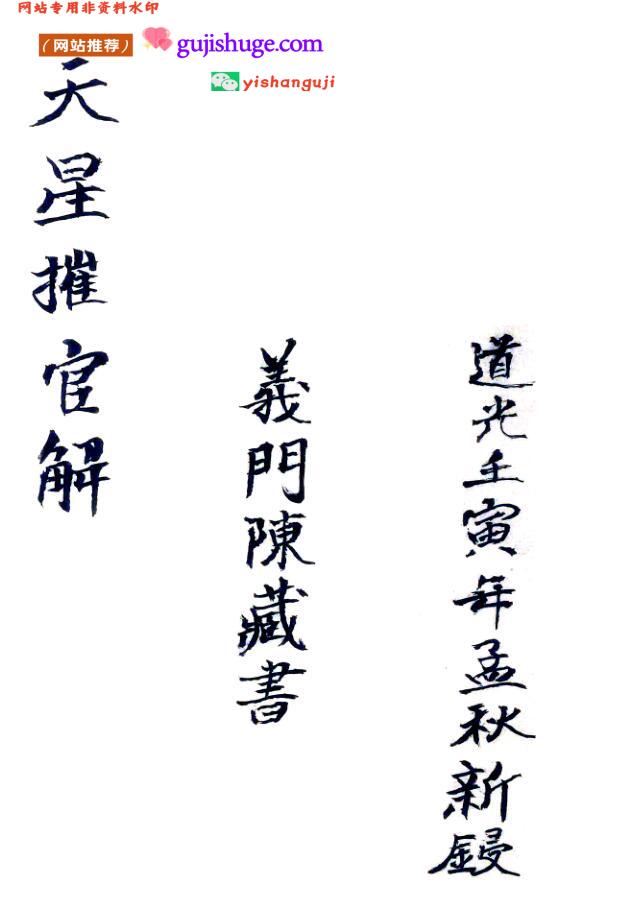 网站专用非资料水印
（网站推荐） gujishuge.com
yishanguji
道光壬寅年孟秋新鋟
義門陳藏書
天星摧官解